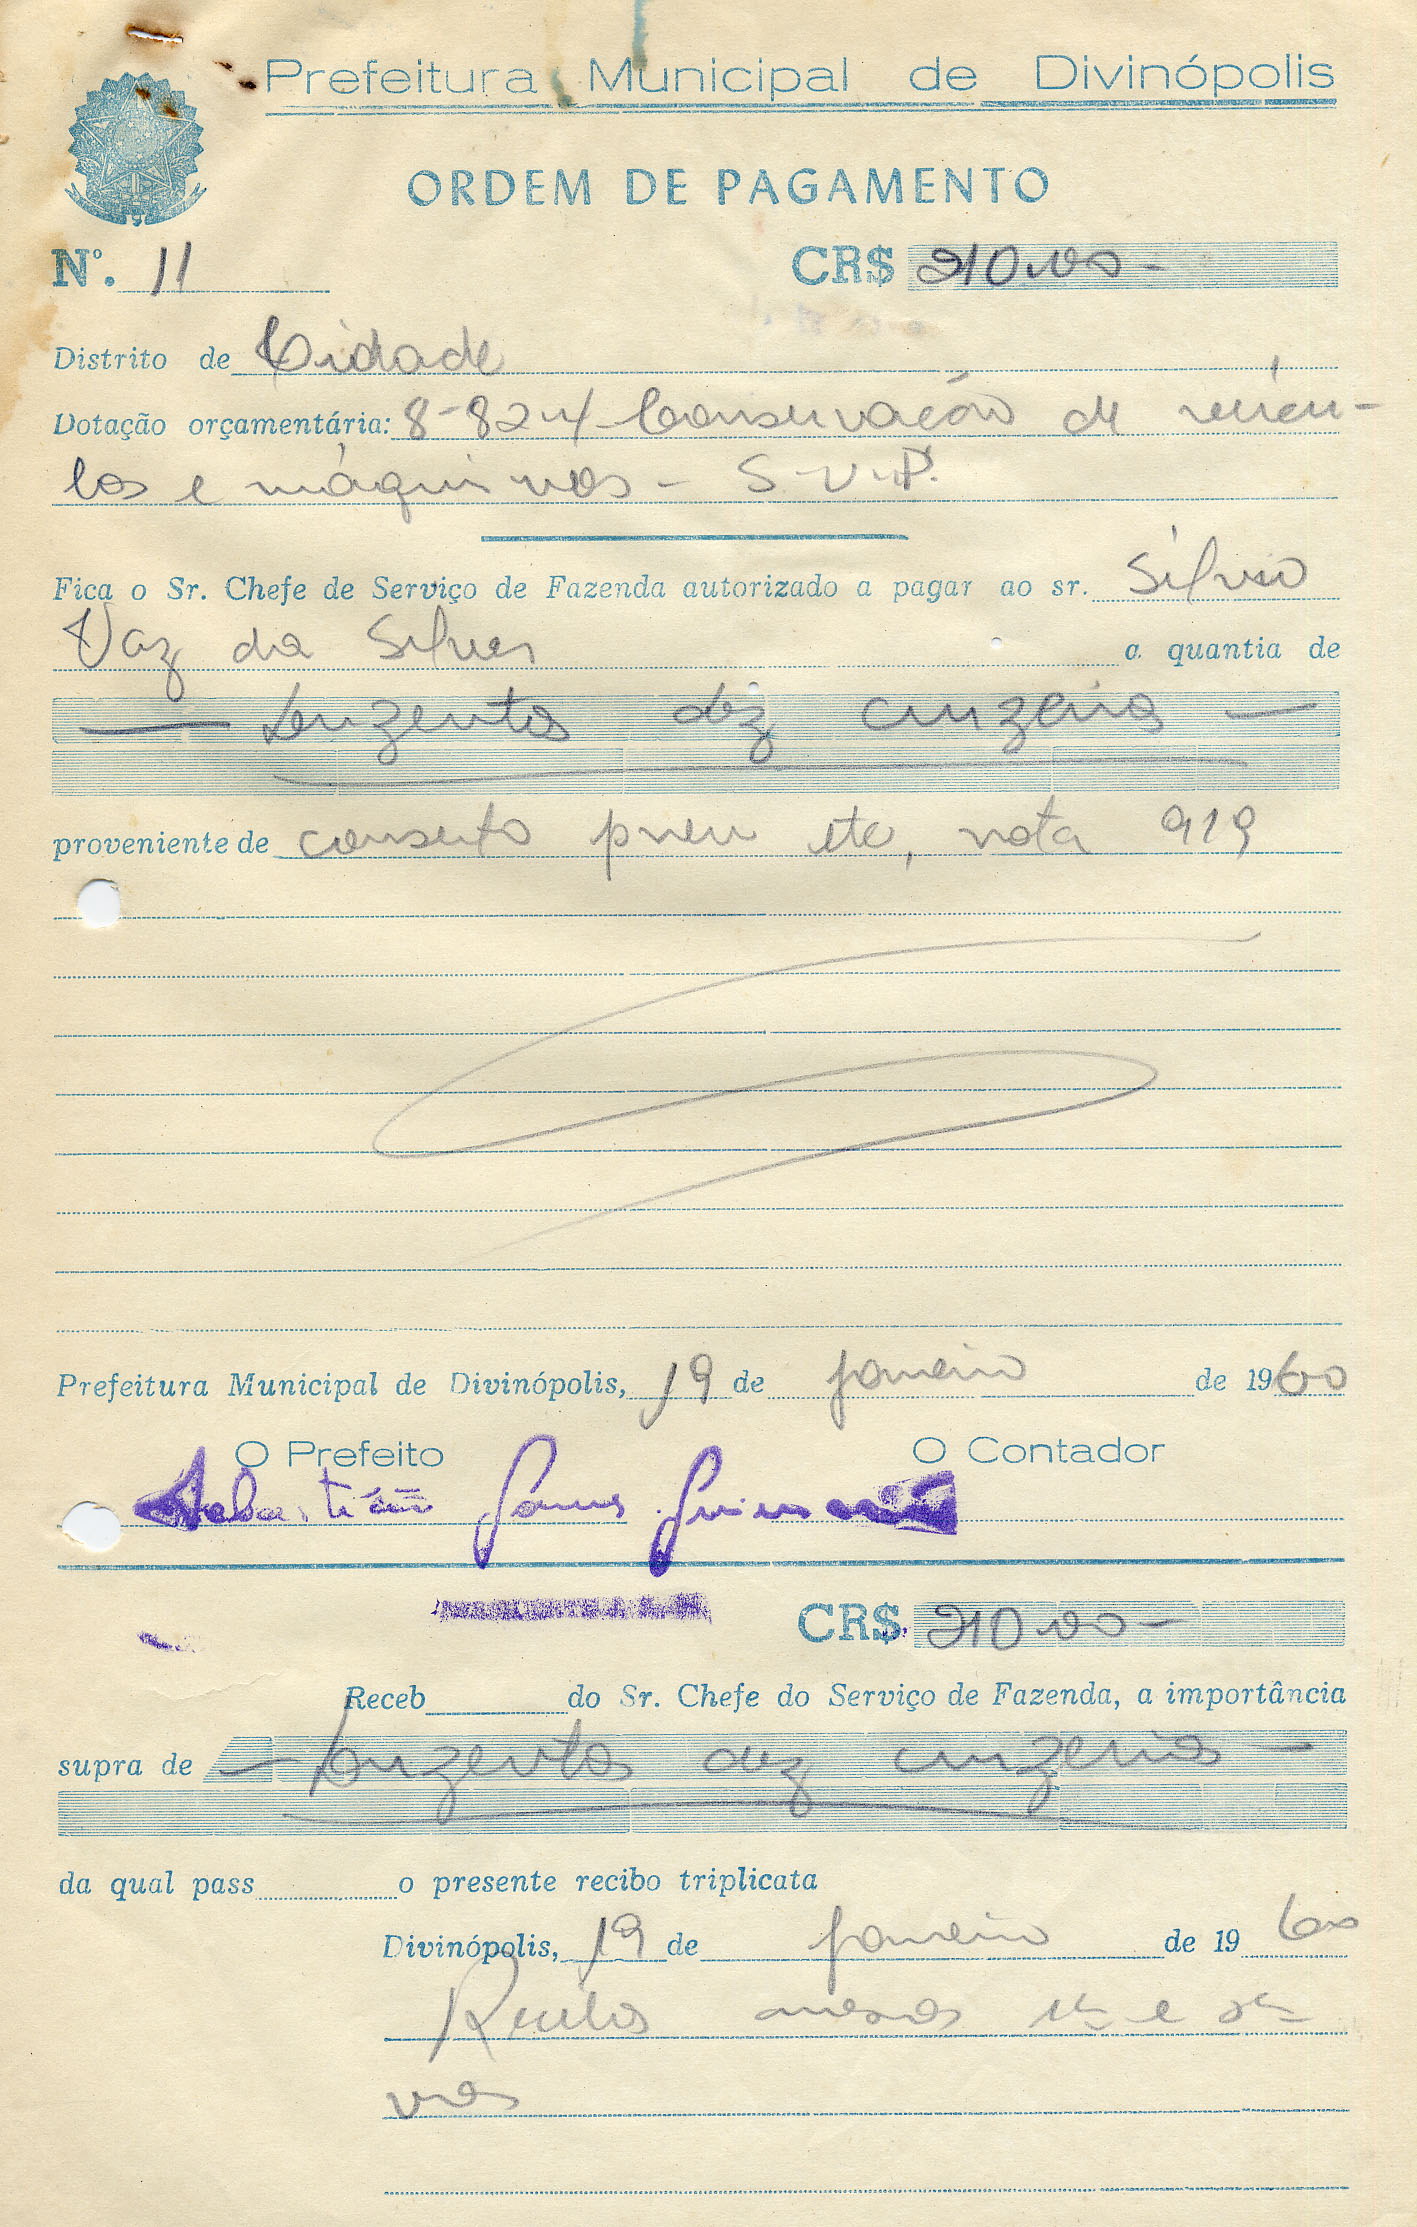 Prefeitura Municipal de Divinópolis
ORDEM DE PAGAMENTO
Nº. 11 CR$ 210.00-
Distrito de Cidade
Dotação orçamentária: 8-82-4 Conservação de veícu-
los e máquinas - S.V.P.
Fica o Sr. Chefe de Serviço de Fazenda autorizado a pagar ao sr. Sílvio
Vaz da Silva a quantia de
— Duzentos dez cruzeiros —
proveniente de conserto pneu etc, nota 919
Prefeitura Municipal de Divinópolis, 19 de janeiro de 1960
O Prefeito O Contador
Sebastião Gomes Guimarães
CR$ 210.00-
Receb do Sr. Chefe do Serviço de Fazenda, a importância
supra de — Duzentos dez cruzeiros —
da qual pass o presente recibo triplicata
Divinópolis, 19 de janeiro de 19 60
Recibos anexos 1ª e 2ª
vias